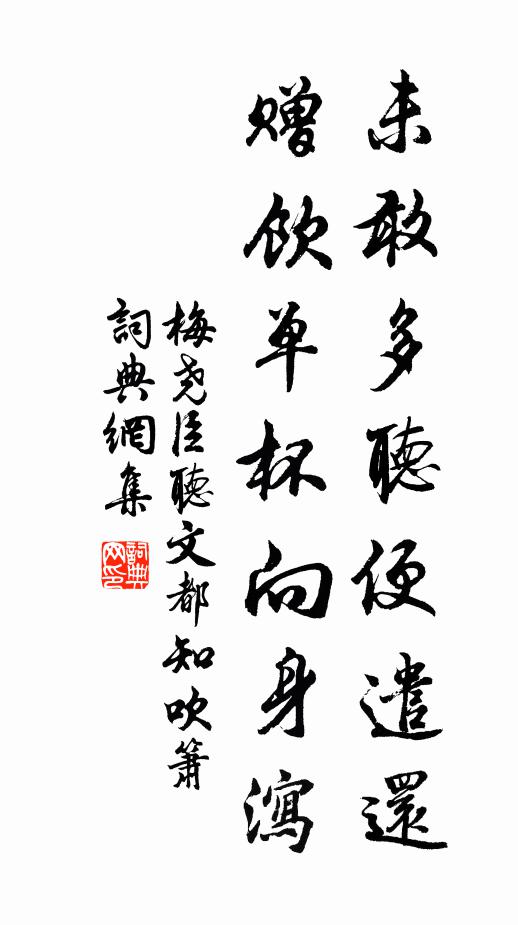 未敢多聽便遣還
贈飲单杯向身瀉
梅尧臣聽文都知吹簫
詞典網集
詞典
网印